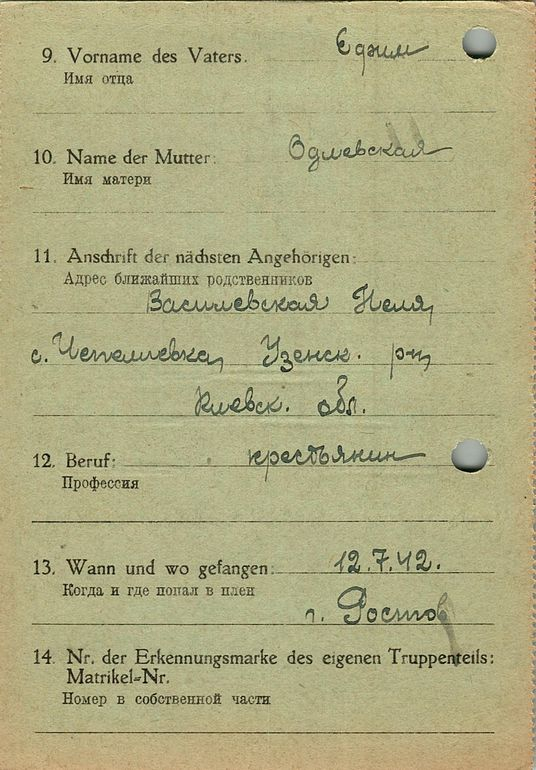 9. Vorname des Vaters. Ефим
Имя отца
10. Name der Mutter: Одлевская
Имя матери
11. Anschrift der nächsten Angehörigen:
Адрес ближайших родственников
Василевская Неля,
с. Чепелиевка, Узенск. р-н,
Киевск. обл.
12. Beruf: крестьянин
Профессия
13. Wann und wo gefangen: 12.7.42.
Когда и где попал в плен
г. Ростов
14. Nr. der Erkennungsmarke des eigenen Truppenteils:
Matrikel-Nr.
Номер в собственной части